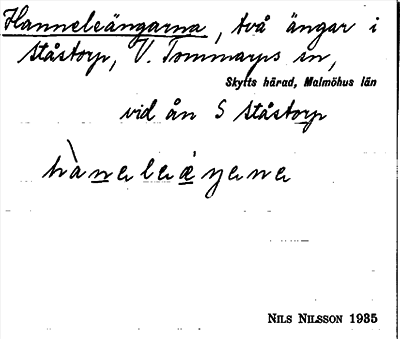 Hanneleängarna, två ängar i
Ståstorp, V. Tommarps sn,
Skytts härad, Malmöhus län
vid ån S Ståstorp
hànaleäŋana
NILS NILSSON 1935